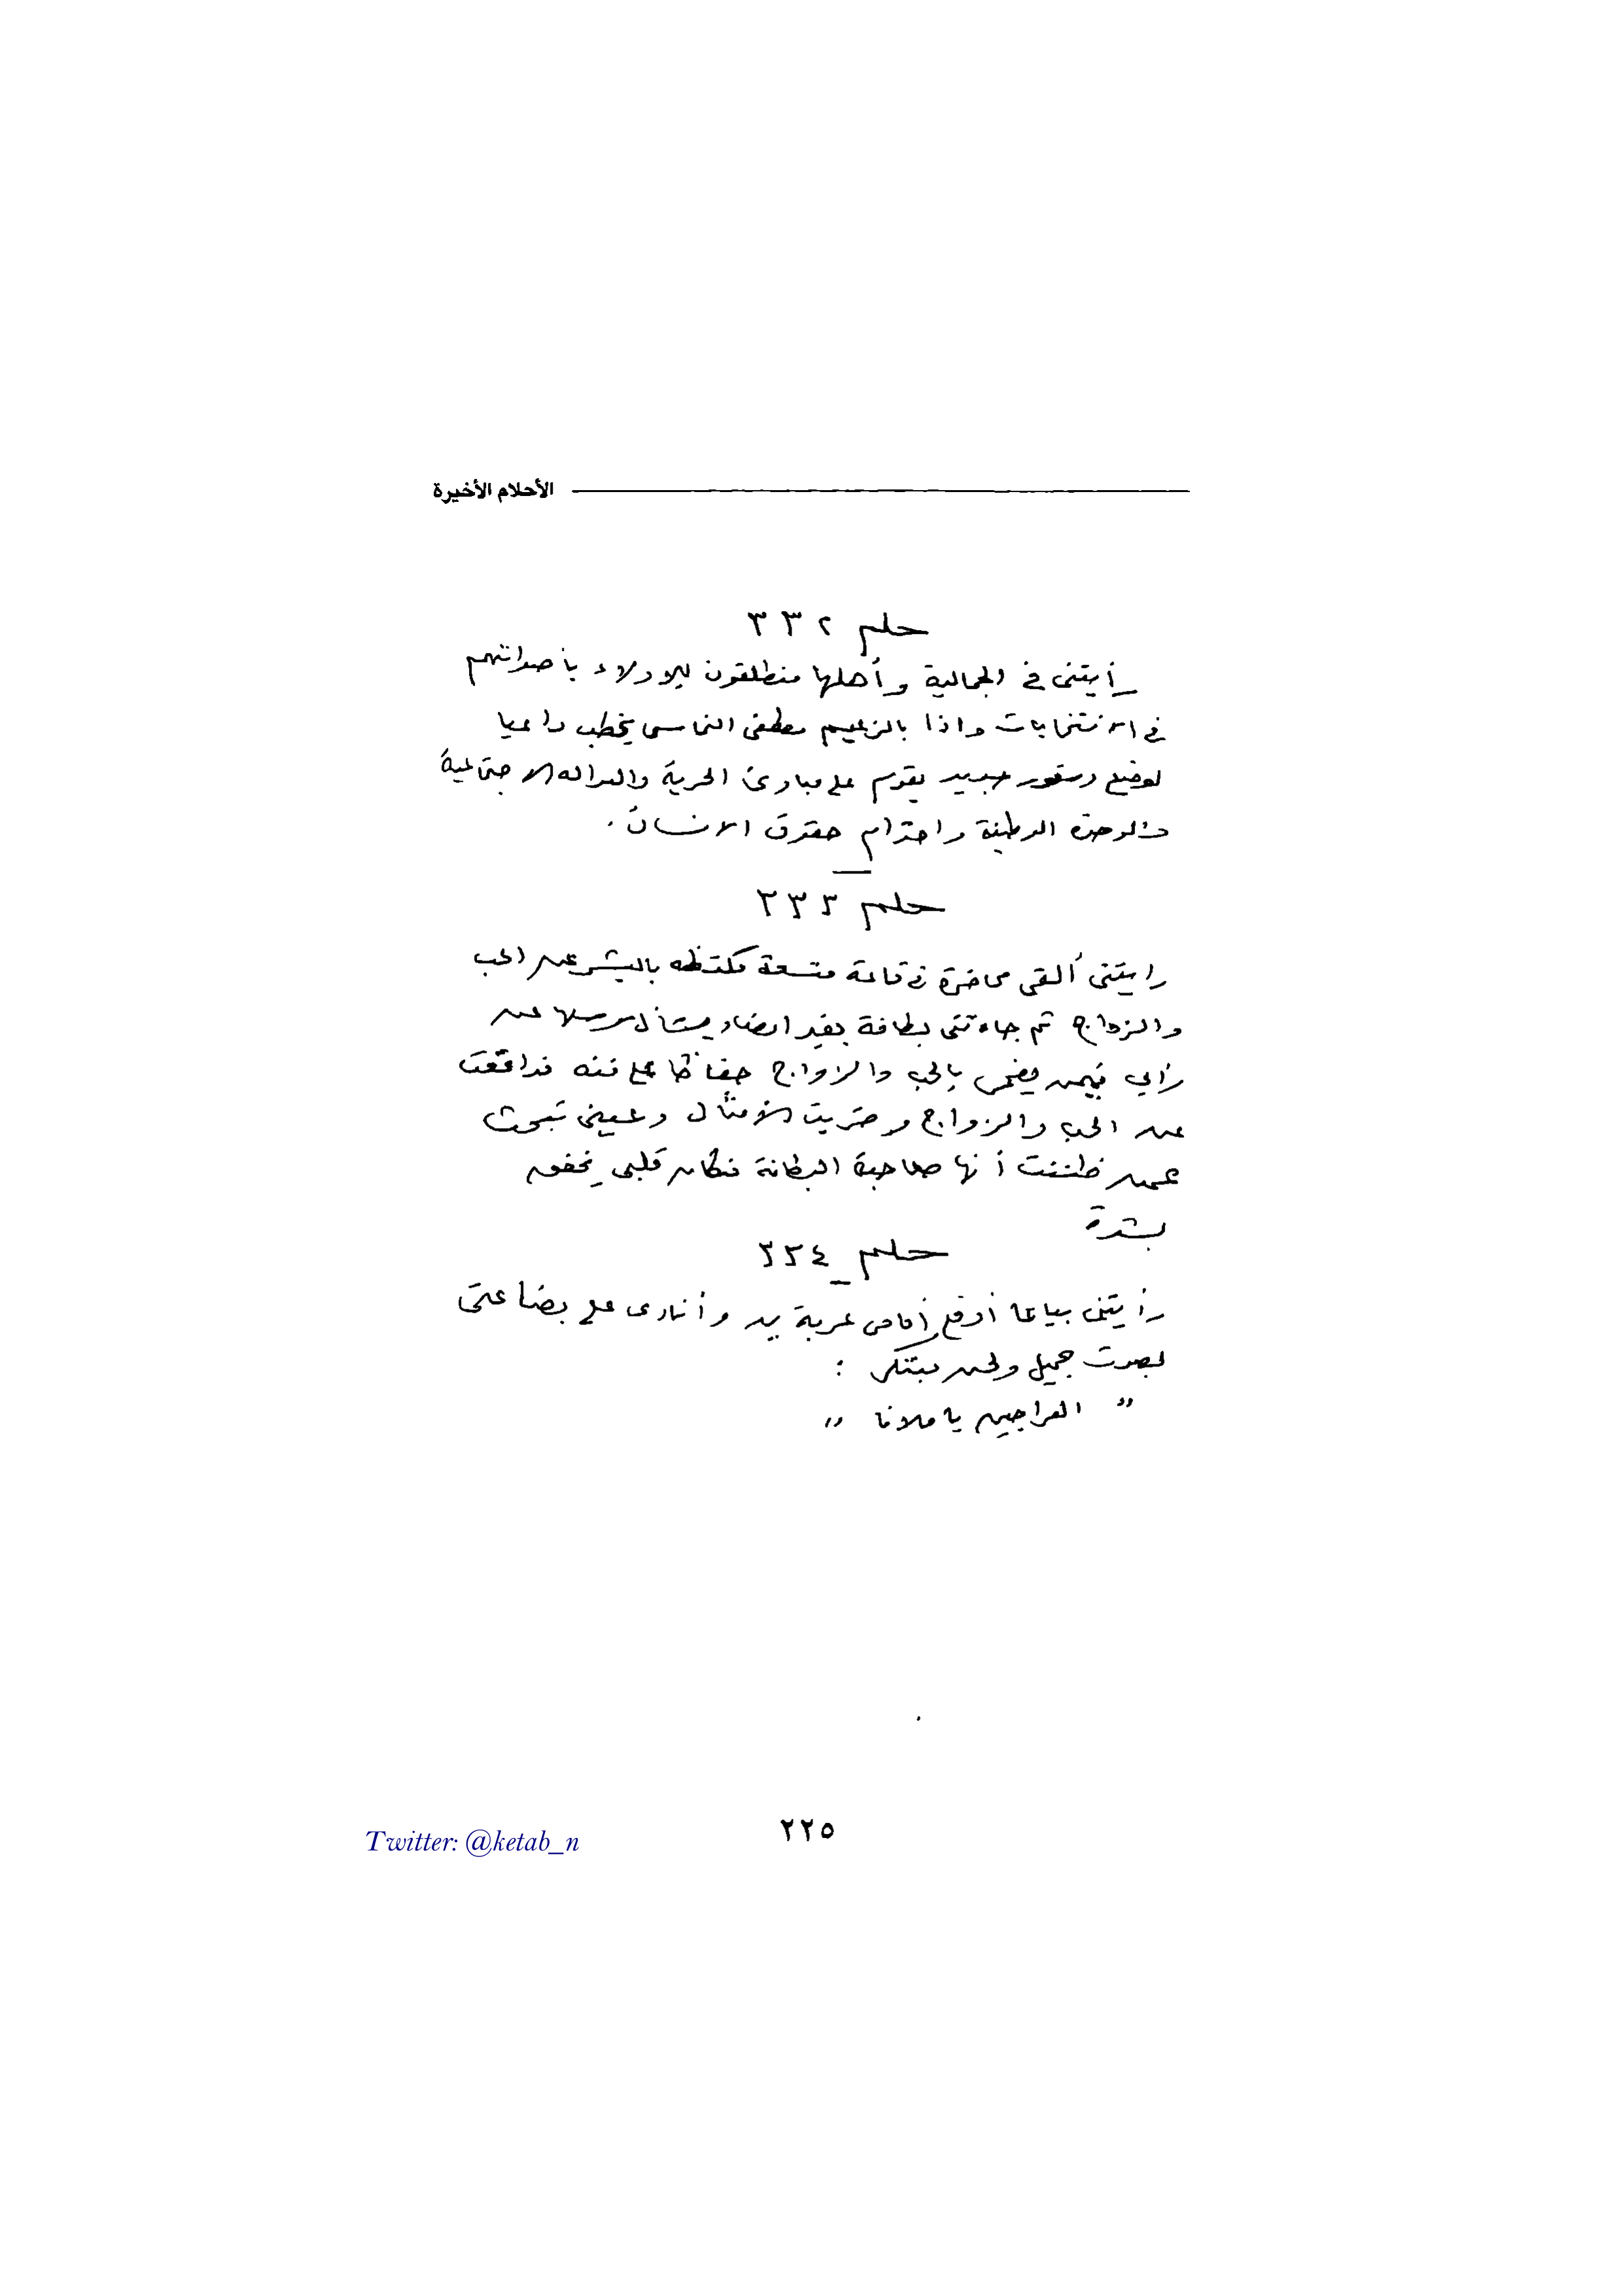 الأحلام الأخيرة
حلم ٣٣٢
رأيتنى فى الجمالية وأهلها منطلقون للإدلاء بأصواتهم
فى الانتخابات واذا بالزعيم مصطفى النحاس يخطب داعيا
لوضع دستور جديد يقوم على مبادئ الحرية والعدالة الاجتماعية
والوحدة الوطنية واحترام حقوق الانسان.
حلم ٣٣٣
رايتنى ألقى محاضرة فى قاعة متسعة مكتظة بالبشر عن الحب
والزواج ثم جاءتنى بطاقة بغير امضاء يسأل مرسلها عن
رأيي فيمن يضحى بالحب والزواج حفاظا على فنه فدافعت
عن الحب والزواج وضربت الأمثال وعينى تبحث
عمن ظننت أنها صاحبة البطاقة فكان قلبى يخفق
بشدة
حلم ٣٣٤
رأيتنى بياعا أدفع أمامى عربة يد وأنادى على بضاعتى
بصوت جميل ولحن مبتكر :
" العراجين يا ملانا "
٢٢٥
Twitter: @ketab_n